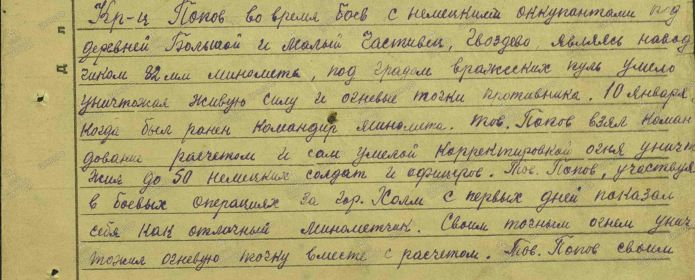 Кр-ц Попов во время боев с немецкими оккупантами под
деревней Большой и Малый Частивец, Гвоздево, являясь навод
чиком 82 мм миномета, под градом вражеских пуль умело
уничтожал живую силу и огневые точки противника. 10 января,
когда был ранен командир миномета. Тов. Попов взял коман
дование расчетом и сам умелой корректировкой огня уничт
жил до 50 немецких солдат и офицеров. Тов. Попов, участвуя
в боевых операциях за гор. Холм с первых дней показал
себя как отличный минометчик. Своим точным огнем унич
тожил огневую точку вместе с расчетом. Тов. Попов своим